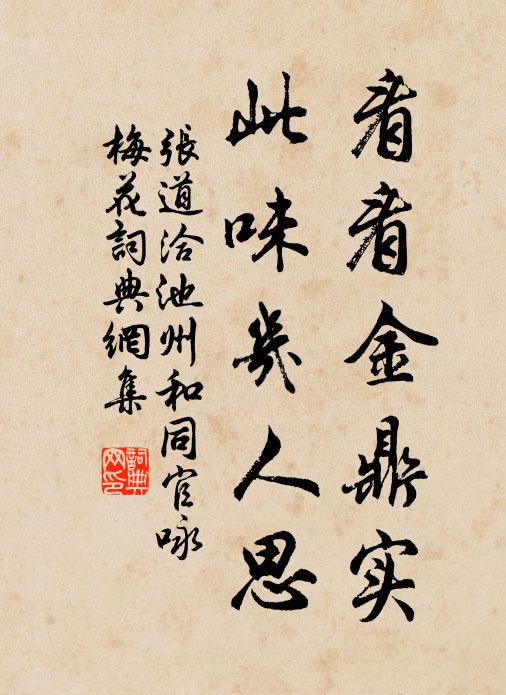 看看金鼎实
此味几人思
張道洽池州和同官咏
梅花詞典網集
詞典
网印